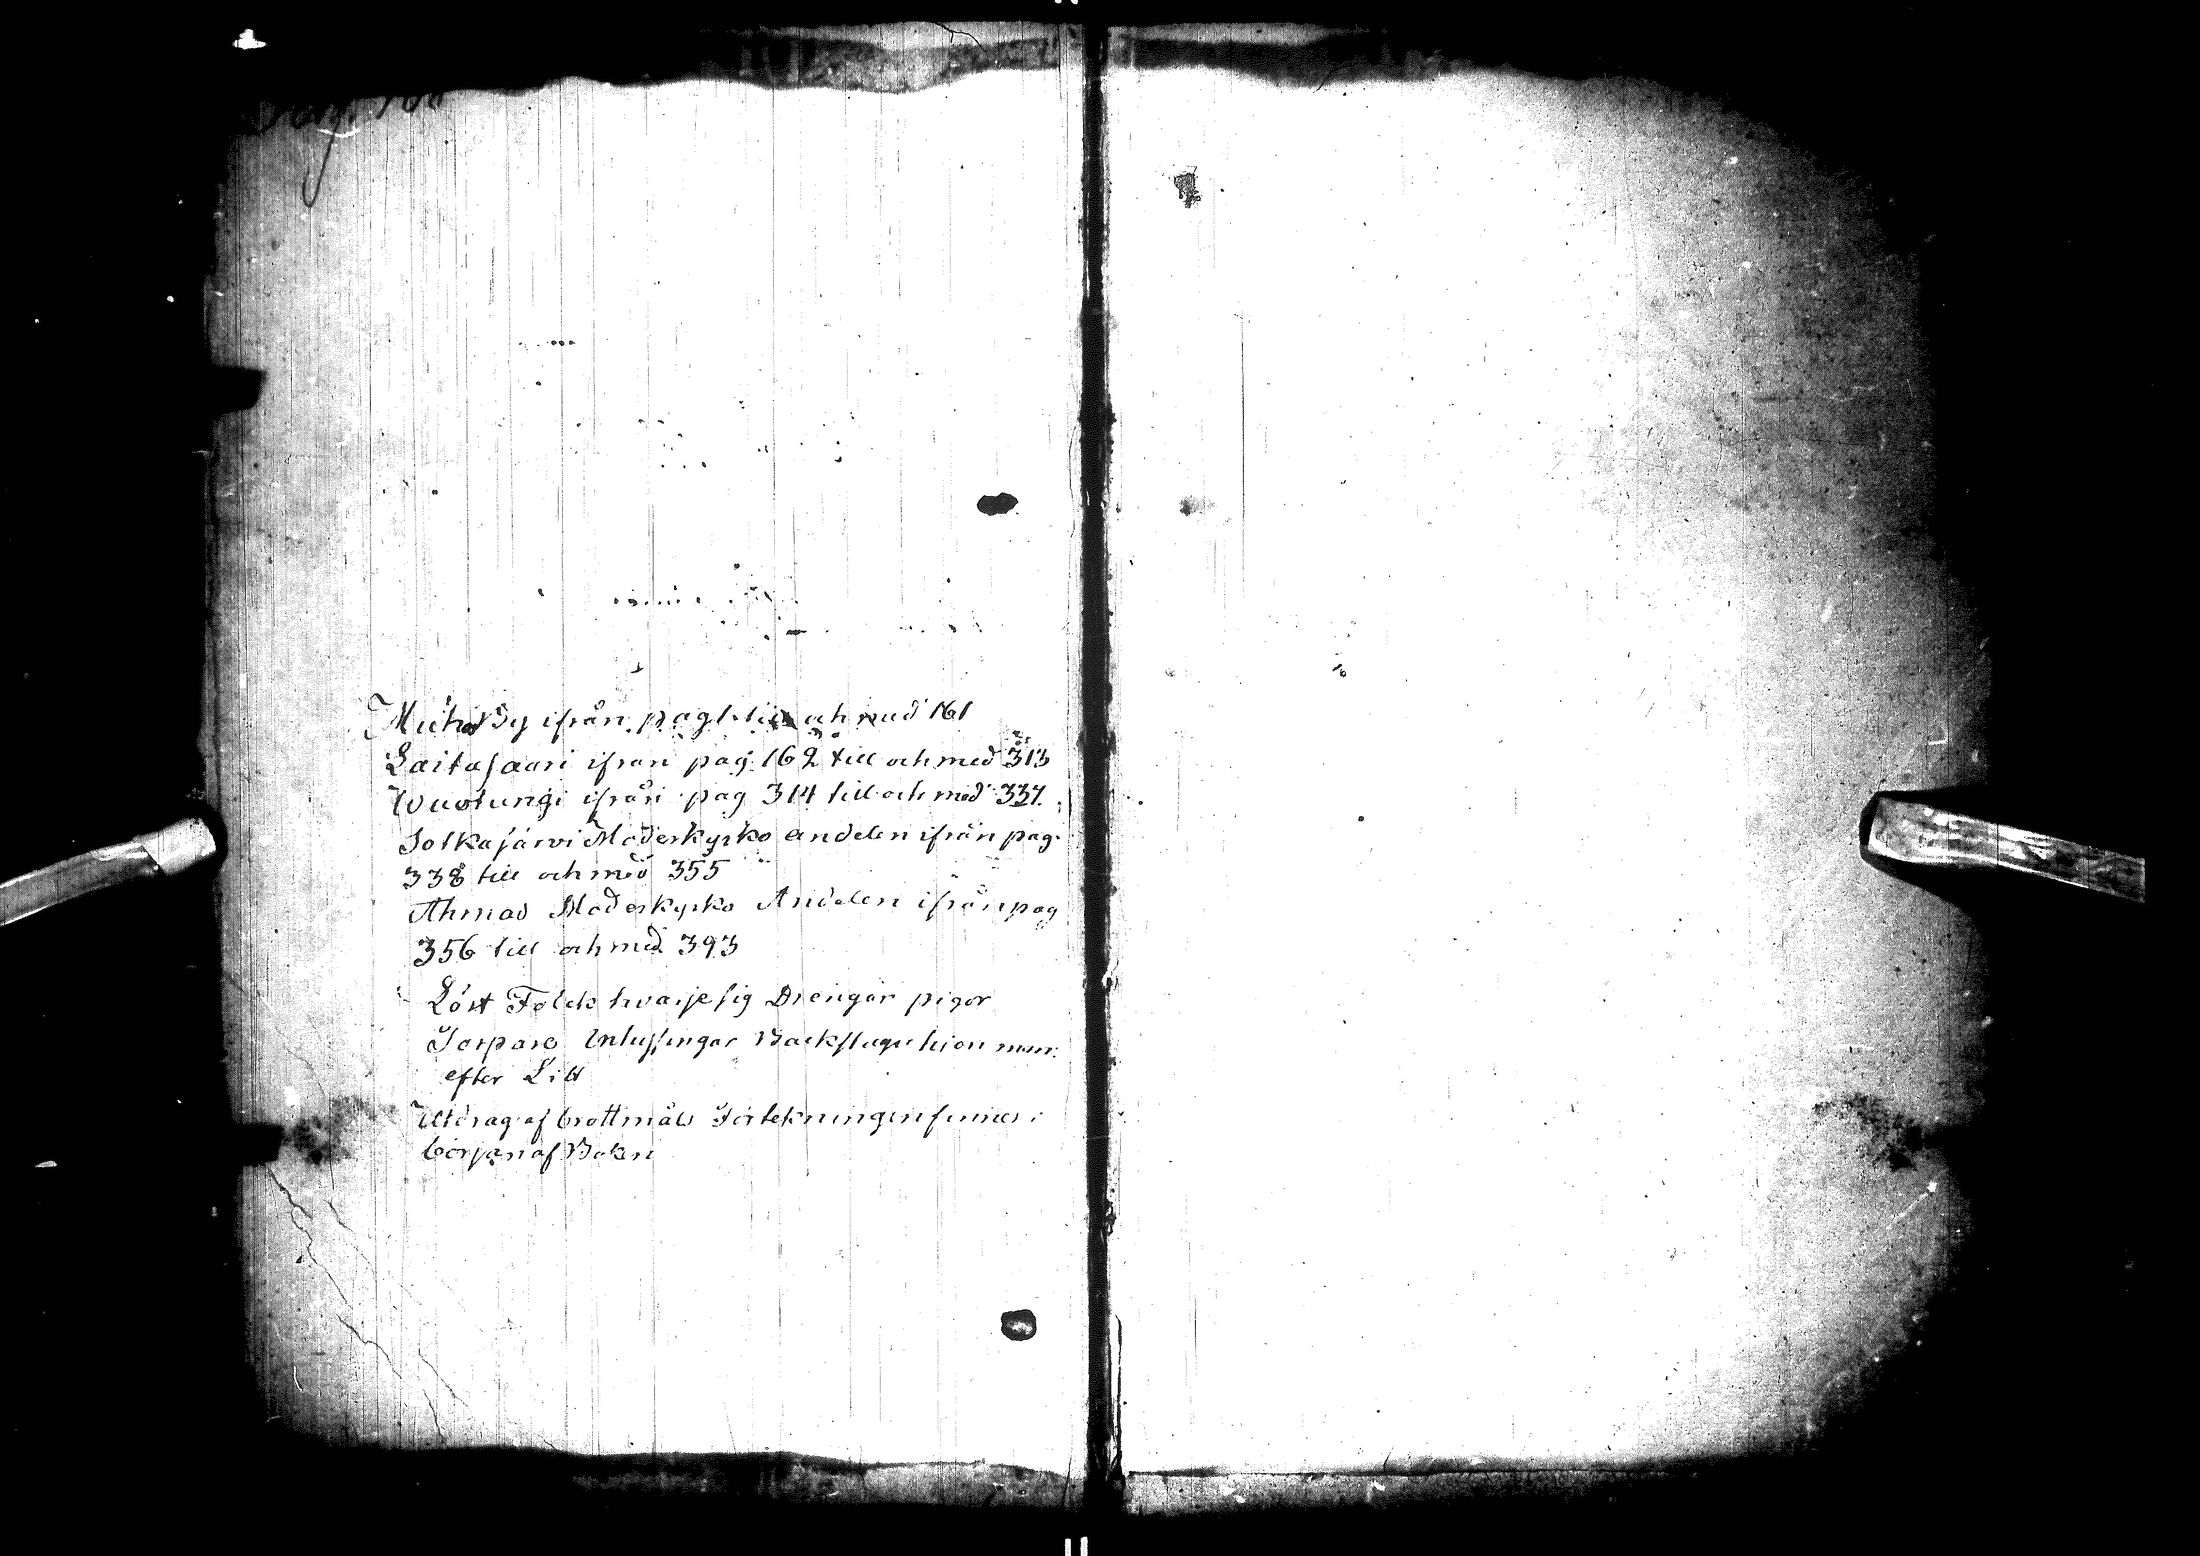 Muhos By ifrån pag 1 till och med 161
Laitasaari ifrån pag 162 till och med 313
Wuotungi ifrån pag 314 till och med 337.
Sotkajärvi Moderkyrko andelen ifrån pag.
338 till och med 355
Ahmas Moderkyrko Andelen ifrån pag
356 till och med 393
Löst Folck hvarje sig Drengar pigor
Torpare Inhysingar Backstugu hion m:m:
efter Litt
Utdrag af brottmåls Förtekningen finnes i
börjanaf Boken